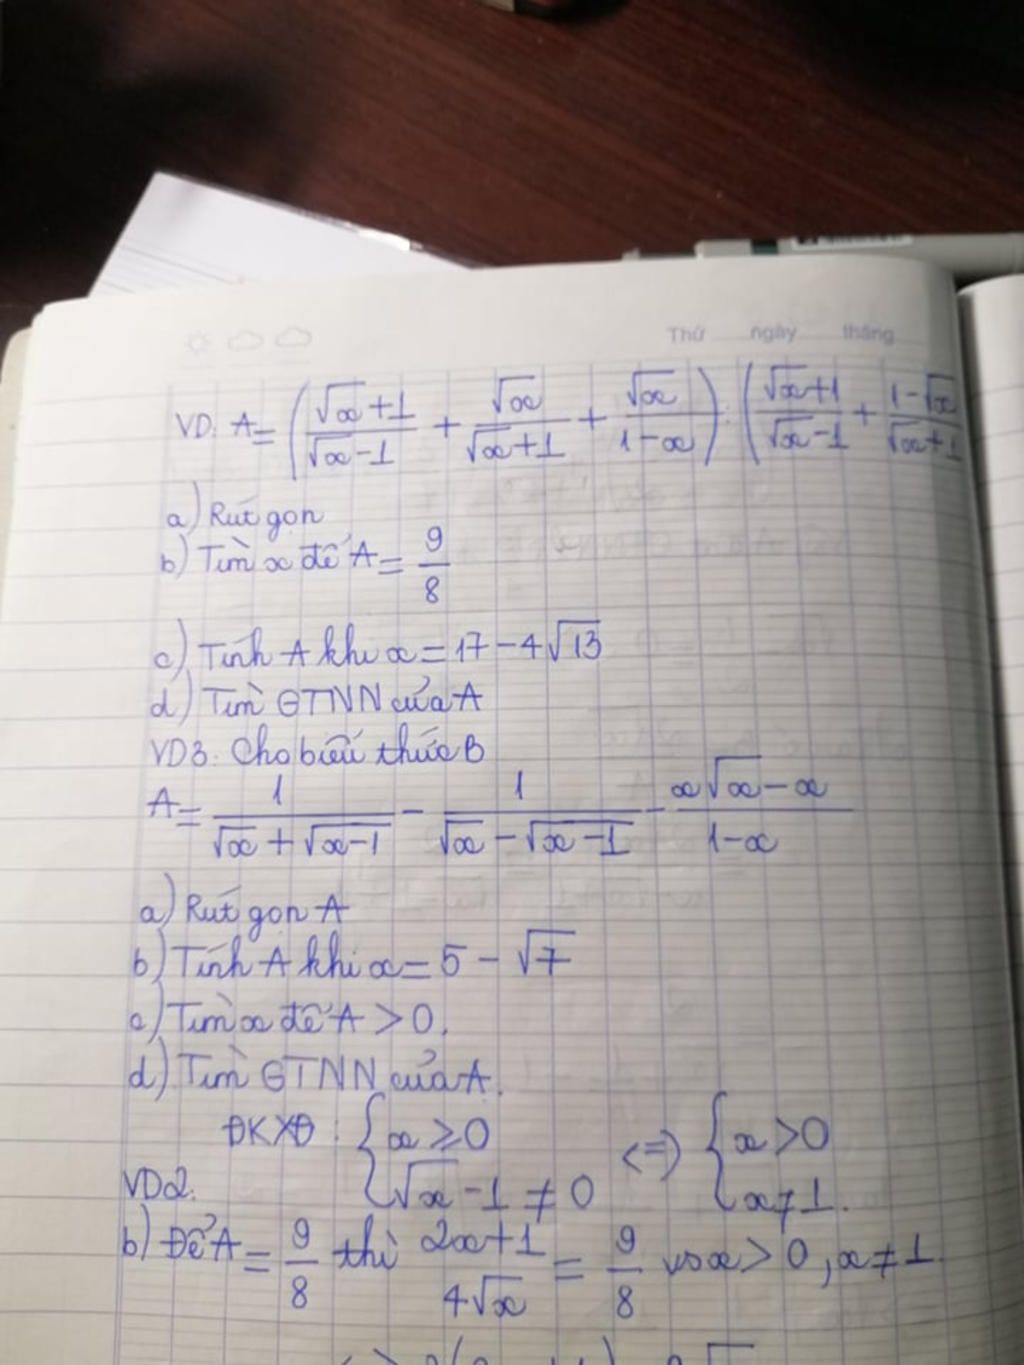 Thứ ngày tháng
VD. A = ( (√x+1)/(√x-1) + √x/(√x+1) + √x/(1-x) ) : ( (√x+1)/(√x-1) + (1-√x)/(√x+1)
a) Rút gọn
b) Tìm x để A = 9/8
c) Tính A khi x = 17 - 4√13
d) Tìm GTNN của A
VD3. Cho biểu thức B
A = 1/(√x + √x-1) - 1/(√x - √x-1) - (x√x - x)/(1-x)
a) Rút gọn A
b) Tính A khi x = 5 - √7
c) Tìm x để A > 0.
d) Tìm GTNN của A.
ĐKXĐ : { x ≥ 0 ; √x - 1 ≠ 0 <=> { x > 0 ; x ≠ 1.
VD2.
b) Để A = 9/8 thì (2x+1)/(4√x) = 9/8 vs x > 0, x ≠ 1.